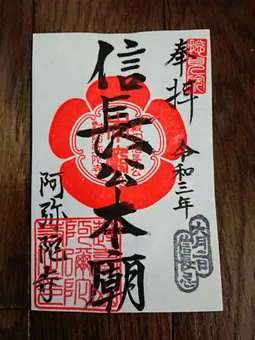 奉拝
令和三年
六月二日
信長忌
信長公本廟
阿弥陀寺